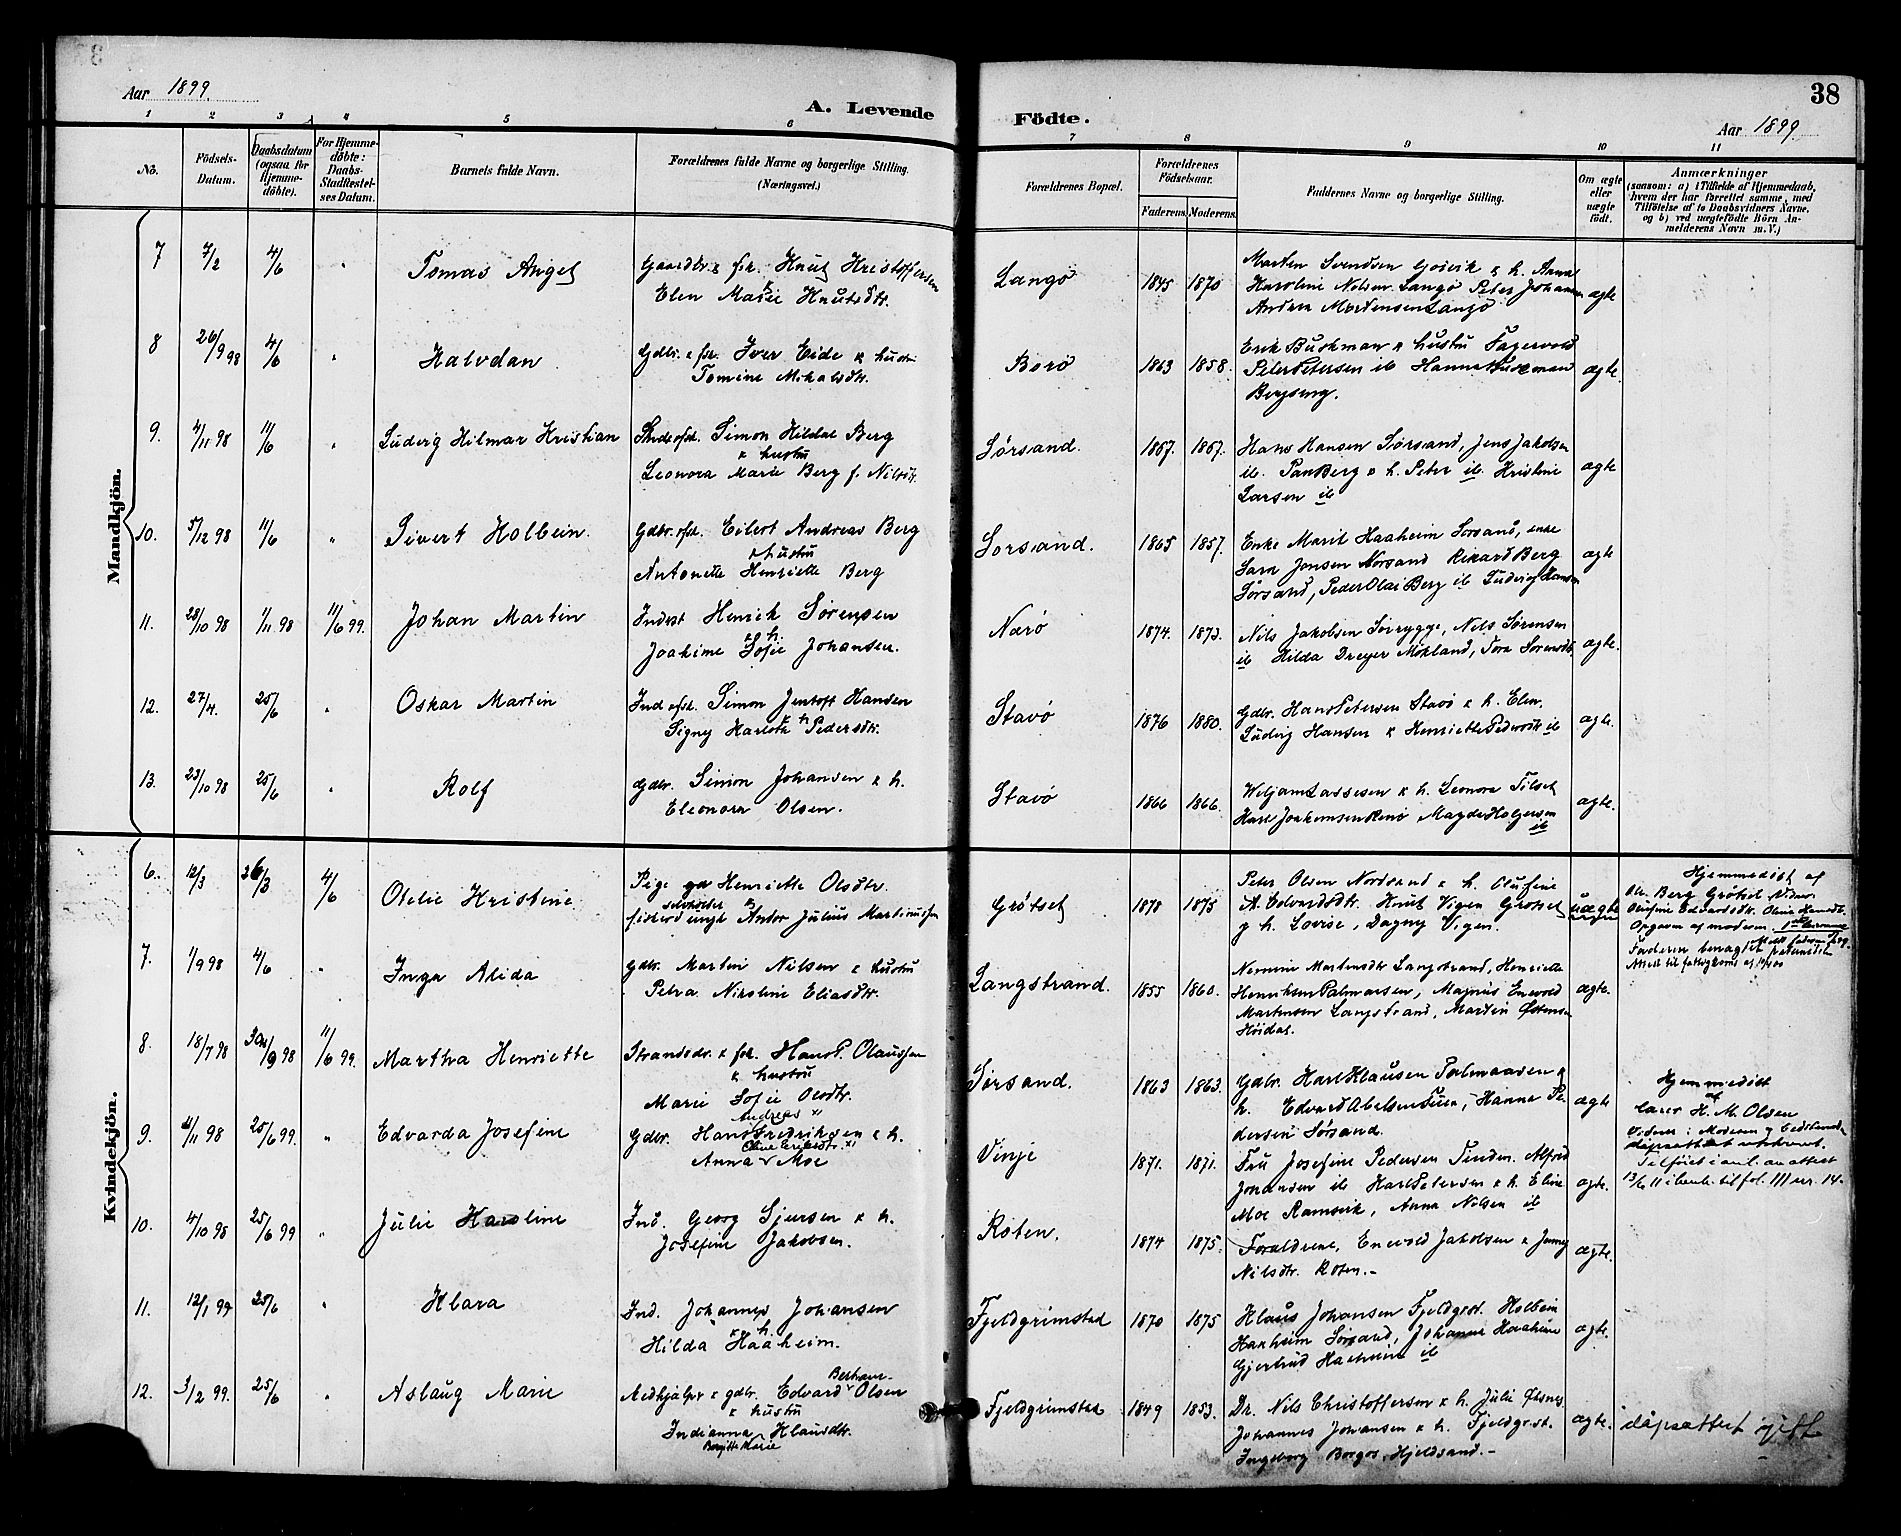 Aar 1899.
A. Levende
Födte.
38
Aar 1899
1 2 3 4 5 6 7 8 9 10 11
No.
Födsels-Datum.
Daabsdatum (ogsaa for Hjemme-döbte).
For Hjemme-döbte: Daabs-Stadfæstel-ses Datum.
Barnets fulde Navn.
Forældrenes fulde Navne og borgerlige Stilling. (Næringsvei.)
Forældrenes Bopæl.
Forældrenes Födselsaar.
Faderens. Moderens.
Faddernes Navne og borgerlige Stilling.
Om ægte eller uægte födt.
Anmærkninger
(saasom: a) i Tilfælde af Hjemmedaab,
hvem der har forrettet samme, med
Tilföielse af to Daabsvidners Navne,
og b) ved uægtefödte Börn An-
melderens Navn m. V.)
Mandkjön.
7 7/2 4/6 " Tomas Angel
Gaardbr. & fsk. Knut Kristoffersen
Elen Marie Knutsdtr.
Langø 1845 1870
Morten Svendsen & h. Anna
Karoline Nelsen Langø Peter Johansen
Andrea Mortensen Langø
ægte
8 26/9 98 4/6 " Halvdan
Gdbr. & fsk. Iver Eide & hustru
Tomine Mikalsdtr.
Borø 1863 1858.
Erik Buskman & hustru Fagervold
Peter Petersen ib Hanna Buskman
Bergseng.
ægte.
9. 4/11 98 11/6 " Ludvig Hilmar Kristian
Simon Hildal Berg
& hustru
Leonora Marie Berg f. Nilsdtr.
Sørsand. 1867. 1867.
Hans Hansen Sørsand, Jens Jakobsen
ib. Berg & h. Peter ib. Kristine
Larsen ib
ægte
10. 5/12 98 11/6 " Sivert Holbein.
Gdbr. & fsk. Eilert Andreas Berg
& hustru
Antonette Henriette Berg
Sørsand. 1865 1857.
Enke Marit Haaheim Sørsand, enke
Sara Jonsen Nørsand Rikard Berg
Sørsand, Peder Olai Berg ib Ludvig Hansen
ægte
11. 28/10 98 1/11 98 11/6 99. Johan Martin
Inderst Henrik Sørensen
& h.
Joakime Sofie Johansen.
Nærø 1874. 1873.
Nils Jakobsen Sørrygge, Nils Sørensen
ib Hilda Dreyer Mokland, Tora Sørensdtr.
ægte.
12. 27/4. 25/6 " Oskar Martin
Ind & fsk. Simon Jentoft Hansen
& h
Signy Karlotta Pedersdtr.
Stavø 1876 1880.
Gdbr. Hans Petersen Stavø & h. Elen.
Ludvig Hansen & Henriette Pedersdtr ib
ægte.
13. 23/10 98 25/6 " Rolf
Gdbr. Simon Johansen & h.
Eleonora Olsen.
Stavø 1866 1866.
Weljam Lassesen & h. Leonora Tilset
Karl Joakimsen Renø, Magda Holgersen
ib
ægte.
Kvindekjön.
6. 12/3 26/3 4/6 Otelie Kristine
Pige Henriette Olsdtr.
selveier &
fisker ungk Andor Julius Martinussen
Grøtset 1878 1875
Peter Olsen Nordsand & h. Olufine
A. Edvardsdtr. Knut Vigen Grøtset
g h. Lovise, Dagny Vigen.
uægte
Hjemmedöbt af
Ole Berg Grøtset Vidner
Olufine Edvardsdtr. Olina Hansdtr.
Opgaven af moderen.
Faderen
7. 1/9 98 4/6 " Inga Alida
Gdbr. Martin Nilsen & hustru
Petra Nikoline Eliasdtr.
Langstrand. 1855 1860.
Nemine Martinsdtr Langstrand, Henriette
Henriksen Palmarsen, Magnus Enevold
Martinsen Langstrand, Martin Østensen
Høidal.
ægte.
8. 18/7 98 30/9 98 11/6 99. Martha Henriette
Strandsdr. & fsk. Hans P. Olaussen
& hustru
Marie Sofie Olsdtr.
Sørsand. 1863 1863.
Gdbr. Karl Klausen Palmaasen &
h. Edvard Abelsen, Hanna Pe-
dersen Sørsand.
ægte
Hjemmedöbt
af
lærer H. M. Olsen
Vidner: Moderen
9. 4/11 98 25/6 99. " Edvarda Josefine
Andreas
Gdbr. Hans Fredriksen & h.
Anna Moe
Vinje 1871. 1871.
Fru Josefine Pedersen Tinden. Alfred
Johansen ib Karl Petersen & h. Eline
Moe Ramsvik, Anna Nilsen ib
ægte.
dåpsattest utskrevet.
Tilføiet i anl. av attest
13/6 11 ibenh. til fol. III nr. 14.
10. 4/10 98 25/6 99 " Julie Karoline
Ind. Georg Sjursen & h.
Josefine Jakobsen.
Roten. 1874 1875.
Forældrene, Enevold Jakobsen & Jenny
Nilsdtr. Roten.-
ægte.
11. 12/1 99 25/6 " Klara
Ind. Johannes Johansen
& h.
Hilda Haaheim.
Fjeldgrimstad 1870 1875
Klaus Johansen Fjeldgrst. Holbein
Haaheim Sørsand, Johanna Haaheim
Gjertrud Haaheim ib
ægte.
12. 3/2 99. 25/6 " Aslaug Marie
Medhjælper & gdbr. Edvard Olsen
& hustru
Indianna Klausdtr.
Bergitte Marie
Fjeldgrimstad 1849 1853.
Dr. Nils Christoffersen & h. Julie Øksnes
Johannes Johansen & h. Fjeldgrst.
Ingeborg Borgos, Hjeldsand.-
ægte.
dåpsattest